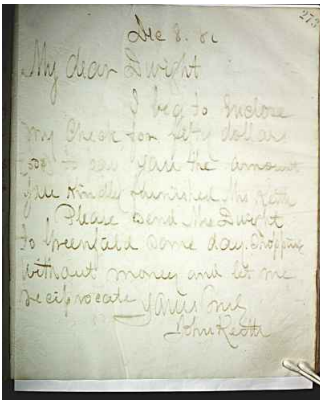 273
Dec 8. 81
My dear Dwight
I beg to Inclose
my Check for fifty dollars
to pay you the amount
you kindly furnished Mrs Keith
Please send Mrs Dwight
to Greenfield some day. Shopping
without money and let me
reciprocate
Yours Truly
John Keith